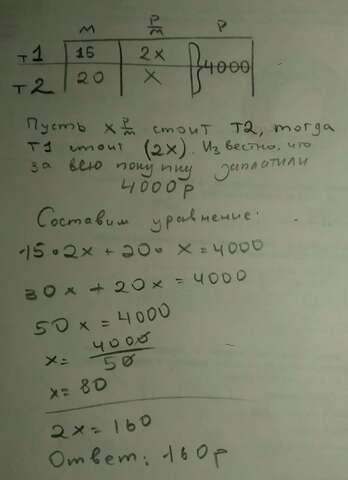 м р/м р
т1 15 2х } 4000
т2 20 х
Пусть х р/м стоит т2, тогда
т1 стоит (2х). Известно, что
за всю покупку заплатили
4000р
Составим уравнение:
15 • 2х + 20 • х = 4000
30х + 20х = 4000
50х = 4000
х = 4000/50
х = 80
2х = 160
Ответ: 160р